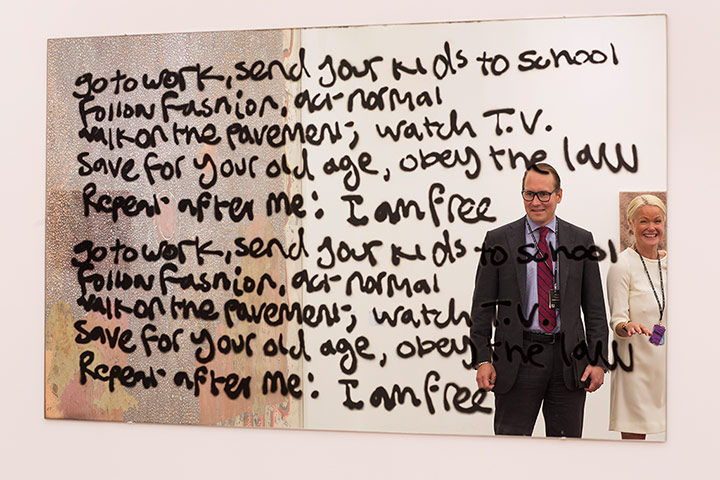 go to work, send your kids to school
Follow fashion, act normal
walk on the pavement, watch T.V.
Save for your old age, obey the law
Repeat after me: I am free
go to work, send your kids to school
Follow fashion, act normal
walk on the pavement, watch T.V.
Save for your old age, obey the law
Repeat after me: I am free